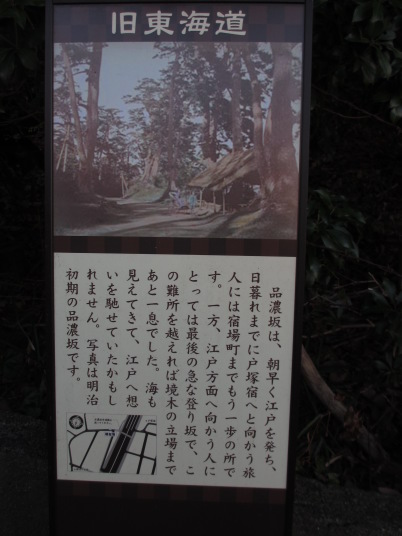 旧東海道
品濃坂は、朝早く江戸を発ち、
日暮れまでに戸塚宿へと向かう旅
人には宿場町までもう一歩の所で
す。一方、江戸方面へ向かう人に
とっては最後の急な登り坂で、こ
の難所を越えれば境木の立場まで
あと一息でした。海も
見えてきて、江戸へ想
いを馳せていたかもし
れません。写真は明治
初期の品濃坂です。